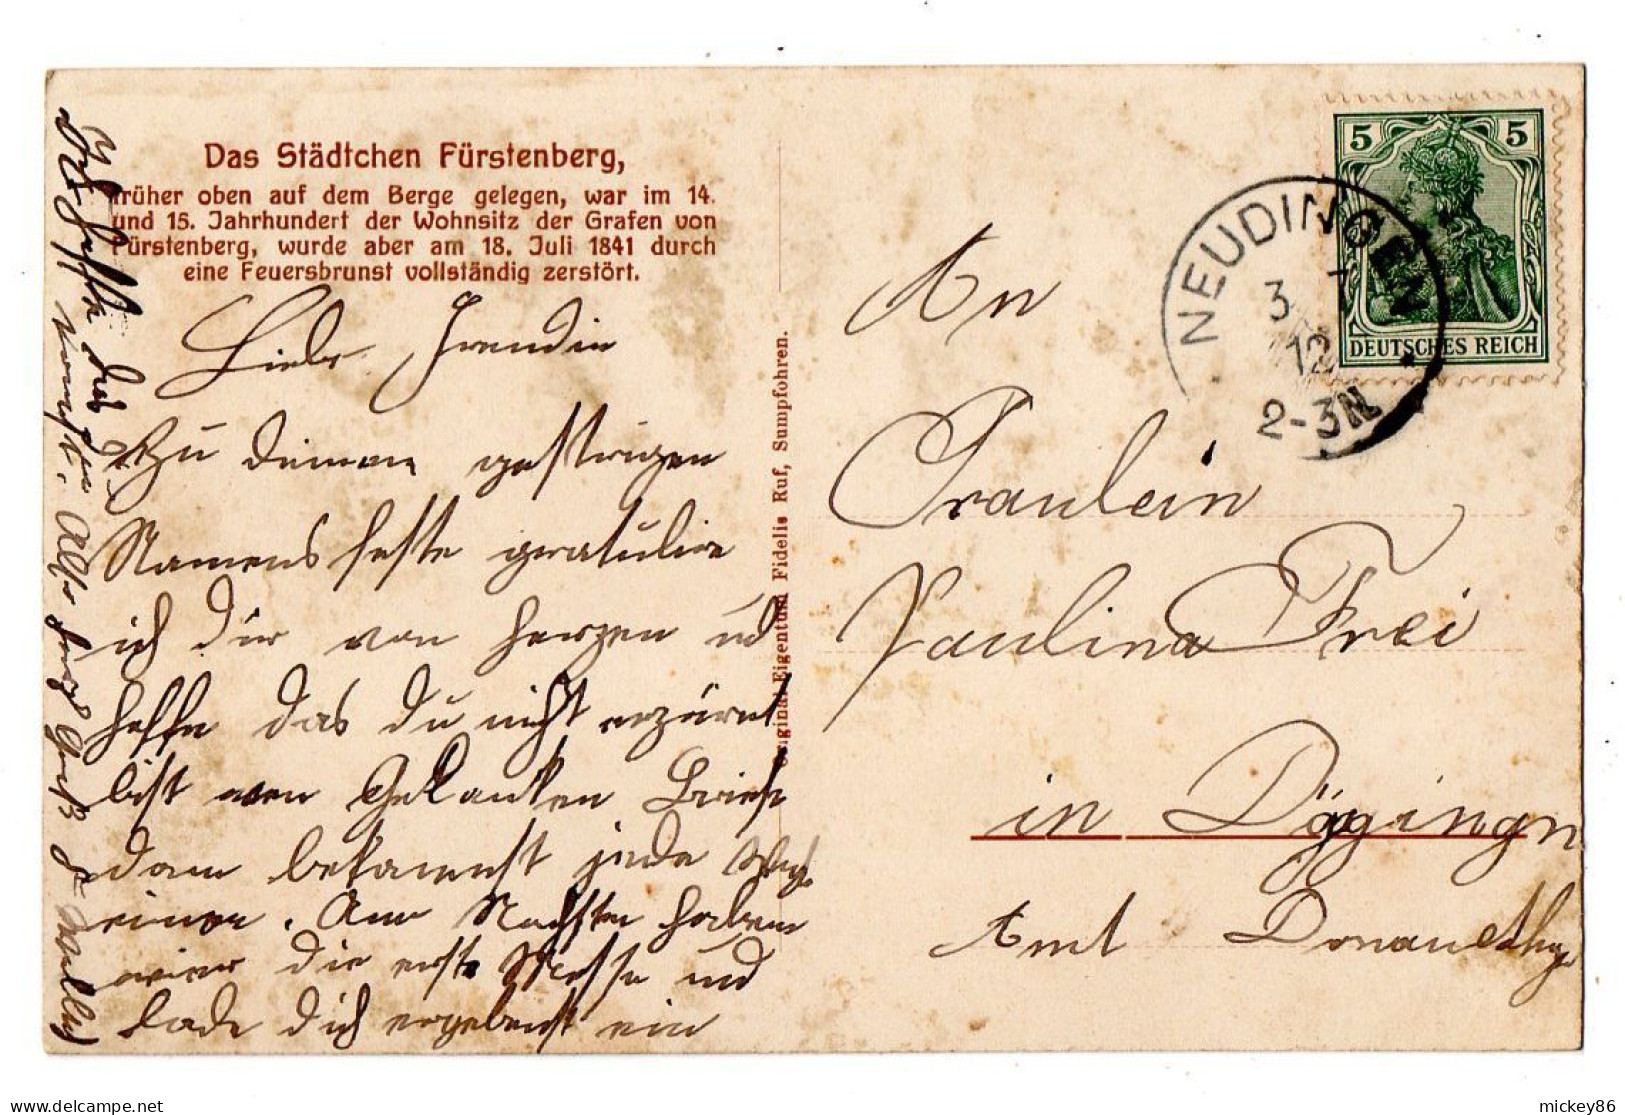 Das Städtchen Fürstenberg,
früher oben auf dem Berge gelegen, war im 14.
und 15. Jahrhundert der Wohnsitz der Grafen von
Fürstenberg, wurde aber am 18. Juli 1841 durch
eine Feuersbrunst vollständig zerstört.
Liebe Freundin
Zu deinem gestrigen
Namensfeste gratulire
ich dir von Herzen und
hoffe das du nicht erzürnt
bist wen Gedanken
dan bekommst jede
einen. Am Nächsten haben
wier die erste Messe und
lade dich ergebenst ein
Ich hoffe das du
komst. Also
Gruß
Original-Eigentum Fidelis Ruf, Sumpfohren.
5 5
DEUTSCHES REICH
NEUDINGEN
3
12
2-3N
An
Fraulein
Paulina Frei
in Döggingn
Amt Donauechg
mickey86